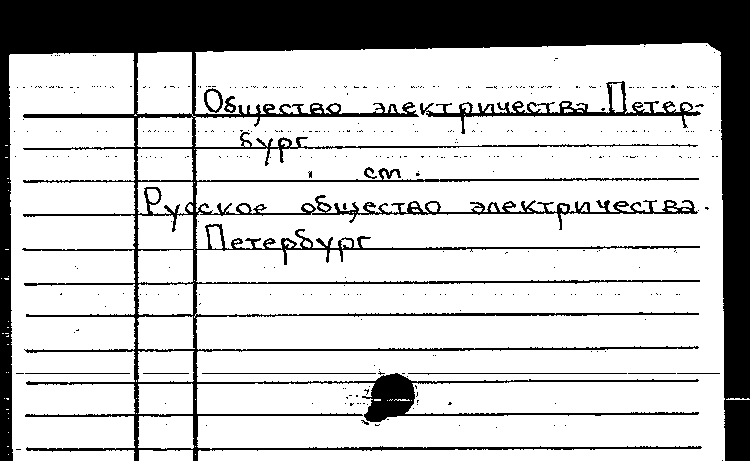 Общество электричества. Петер-
бург
ст.
Русское общество электричества.
Петербург